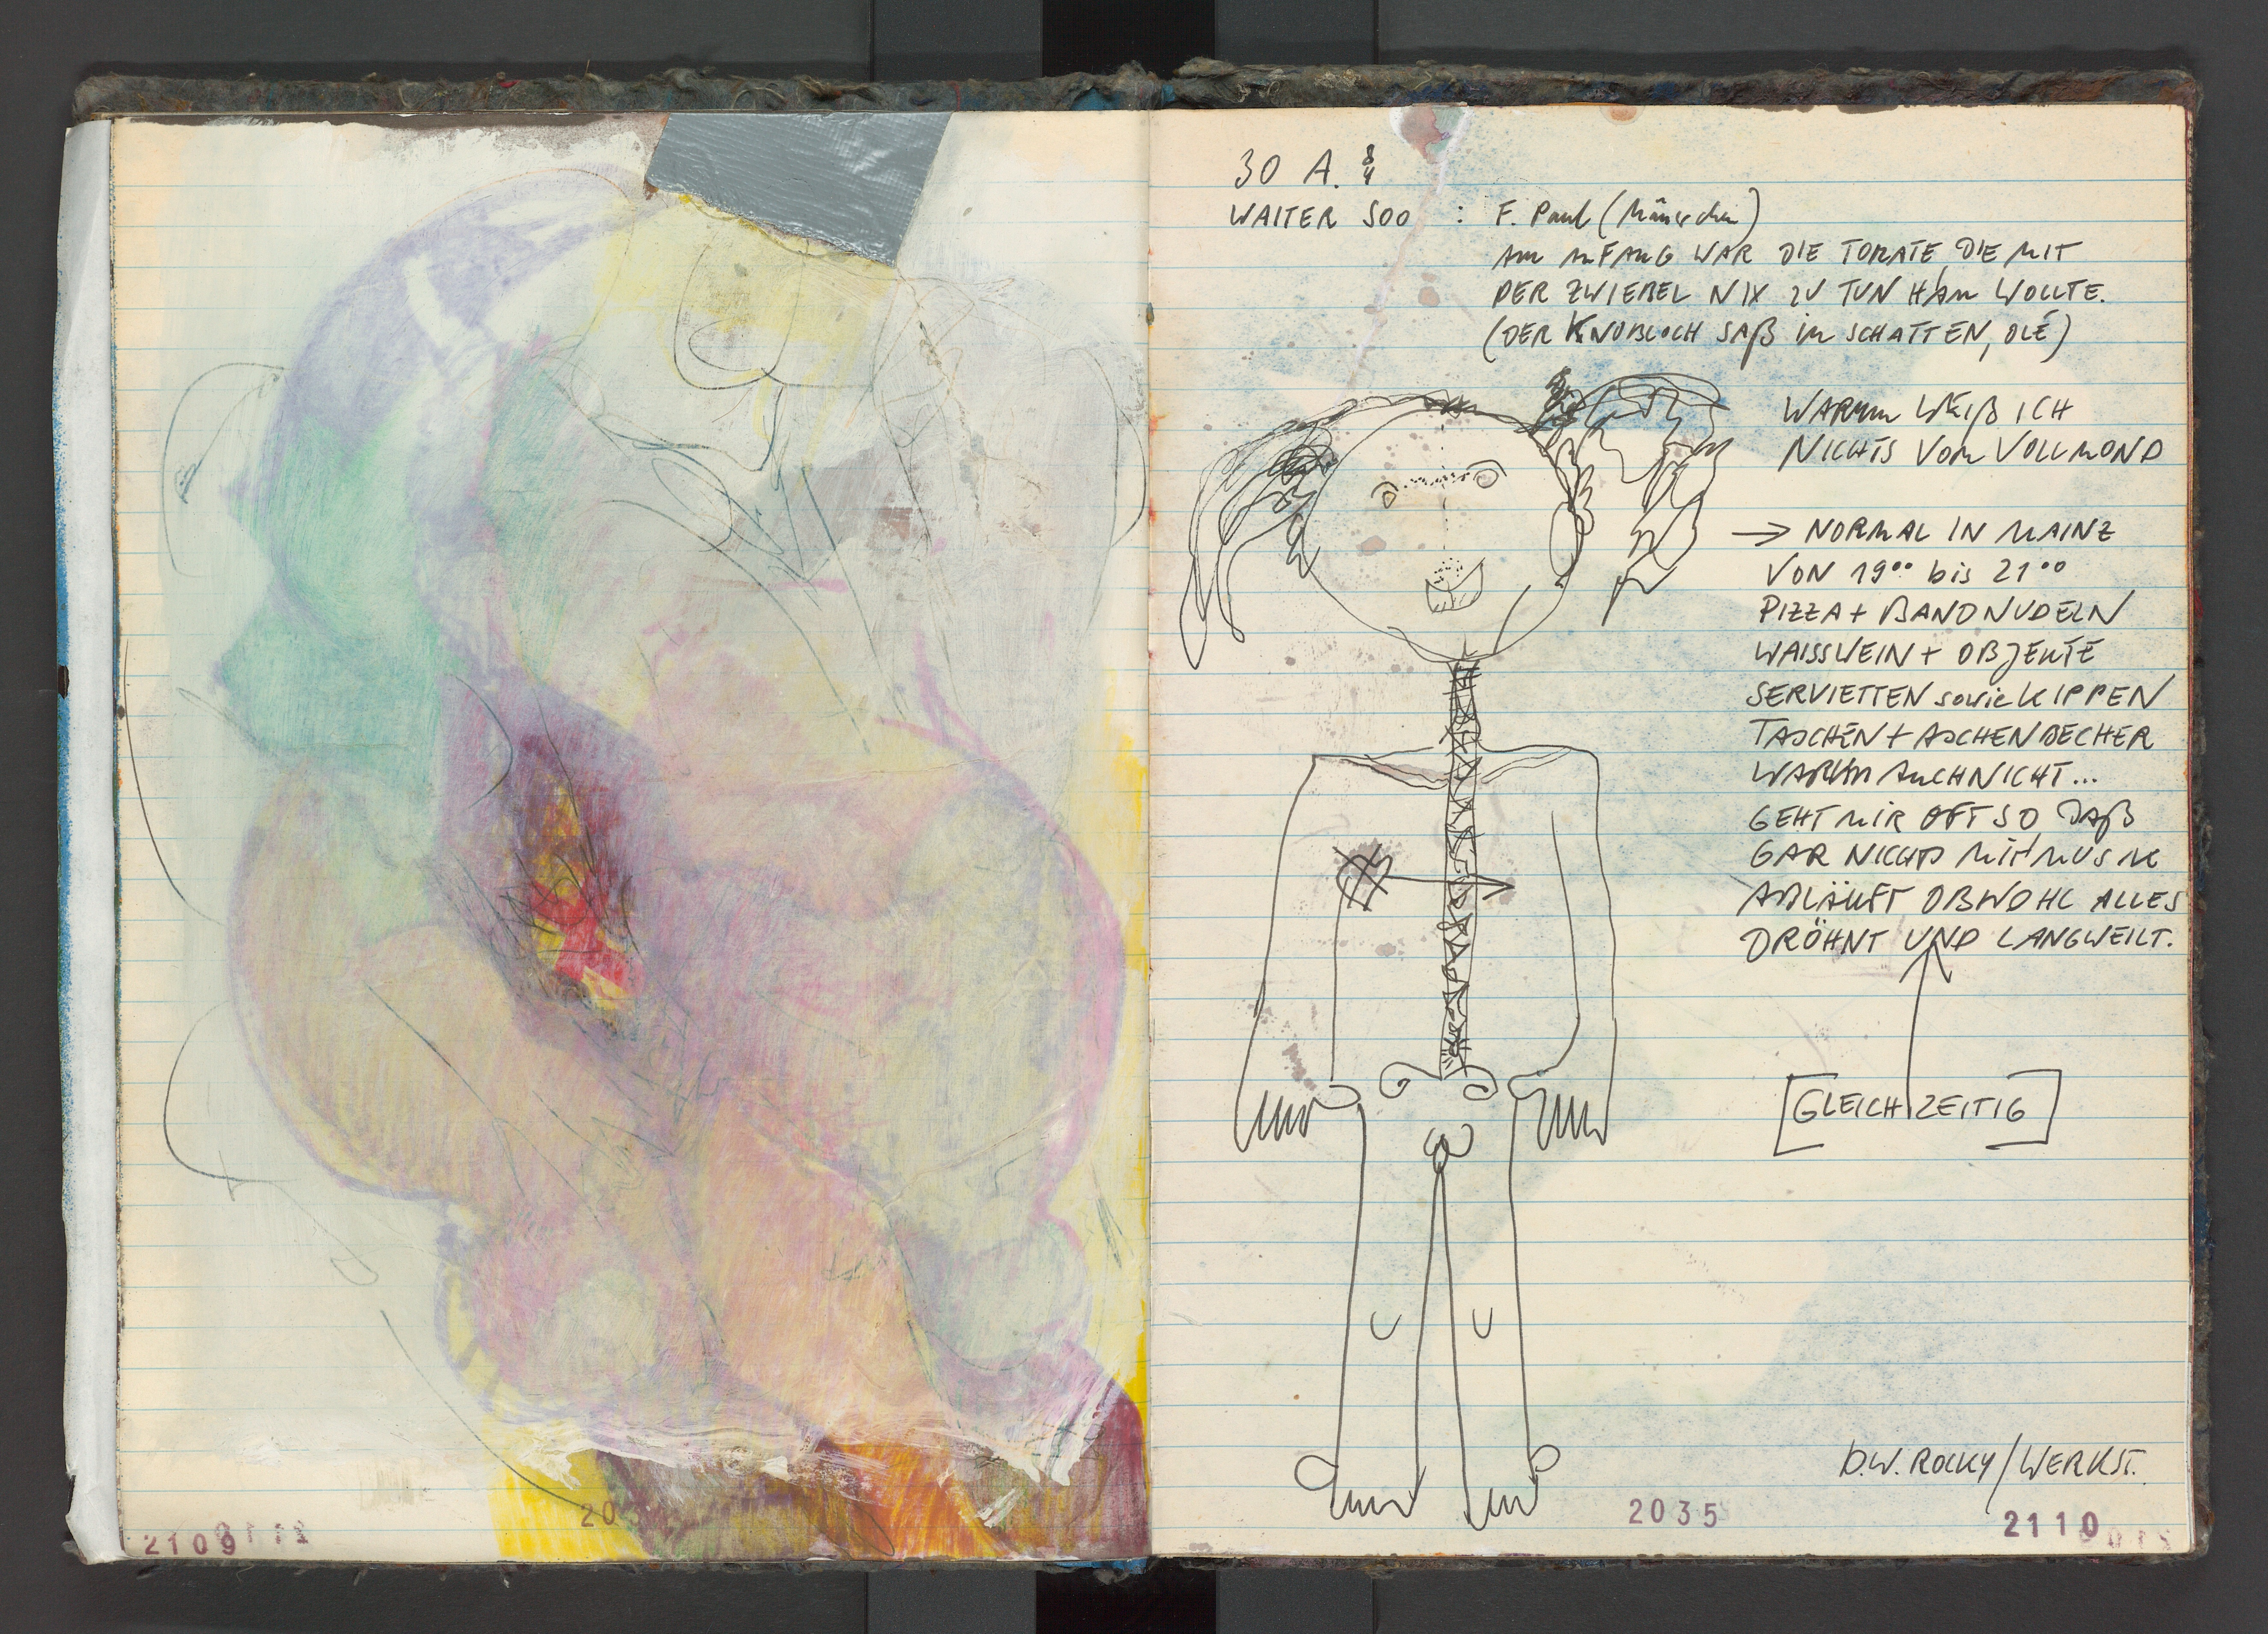 30 A. 8/4
WAITER 500 : F. Paul (Mäuschen)
AM ANFANG WAR DIE TOMATE DIE MIT
DER ZWIEBEL NIX ZU TUN HAM WOLLTE.
(DER KNOBLOCH SAß IM SCHATTEN, OLÉ)
WARUM WEIß ICH
NICHTS VOM VOLLMOND
→ NORMAL IN MAINZ
VON 19°° bis 21°°
PIZZA + BANDNUDELN
WAISSWEIN + OBJEKTE
SERVIETTEN sowie KIPPEN
TASCHEN + ASCHENBECHER
WARUM AUCH NICHT...
GEHT MIR OFT SO DAß
GAR NICHTS MIT MUSIK
ABLÄUFT OBWOHL ALLES
DRÖHNT UND LANGWEILT.
[GLEICHZEITIG]
D.W. ROCKY/WERKST.
2035
2109
2110